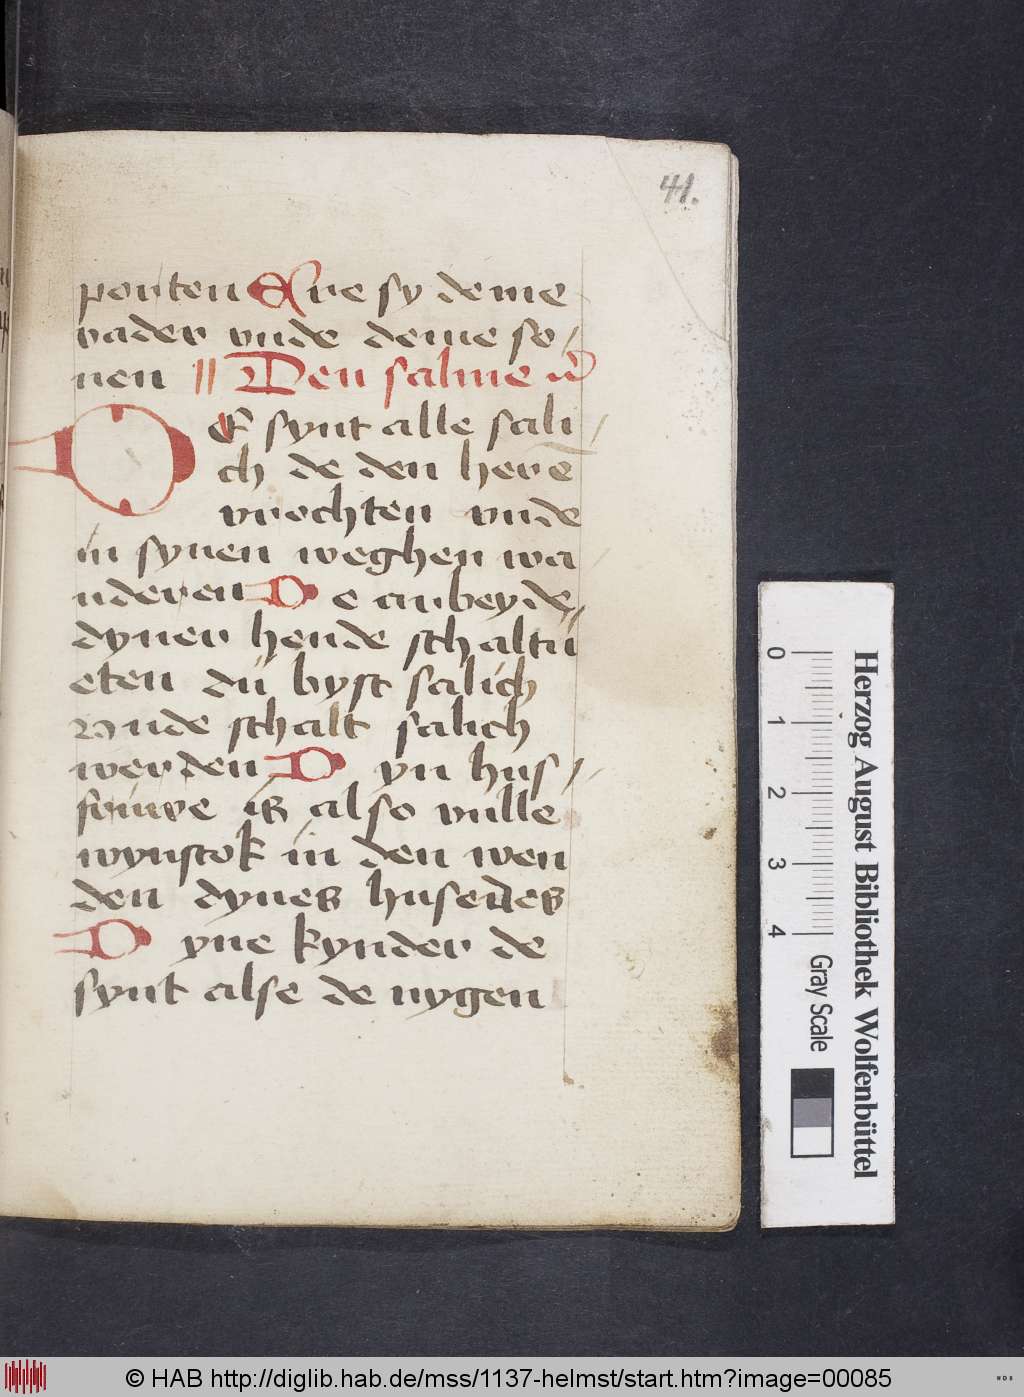 41.
porten Ere sy deme
vader vnde deme so/
nen || Den salme
DE synt alle sali/
ch de den herē
vrochten vnde
in synen weghen wa/
nderen De arbeyde/
dyner hende schaltu
eten du byst salich
vnde schalt salich
werden Dyn hus/
is also vulle
wynstok in den wen
den dynes huses
Dyne kynder de
synt alse de nygen
Herzog August Bibliothek Wolfenbüttel
0 1 2 3 4
Gray Scale
© HAB http://diglib.hab.de/mss/1137-helmst/start.htm?image=00085